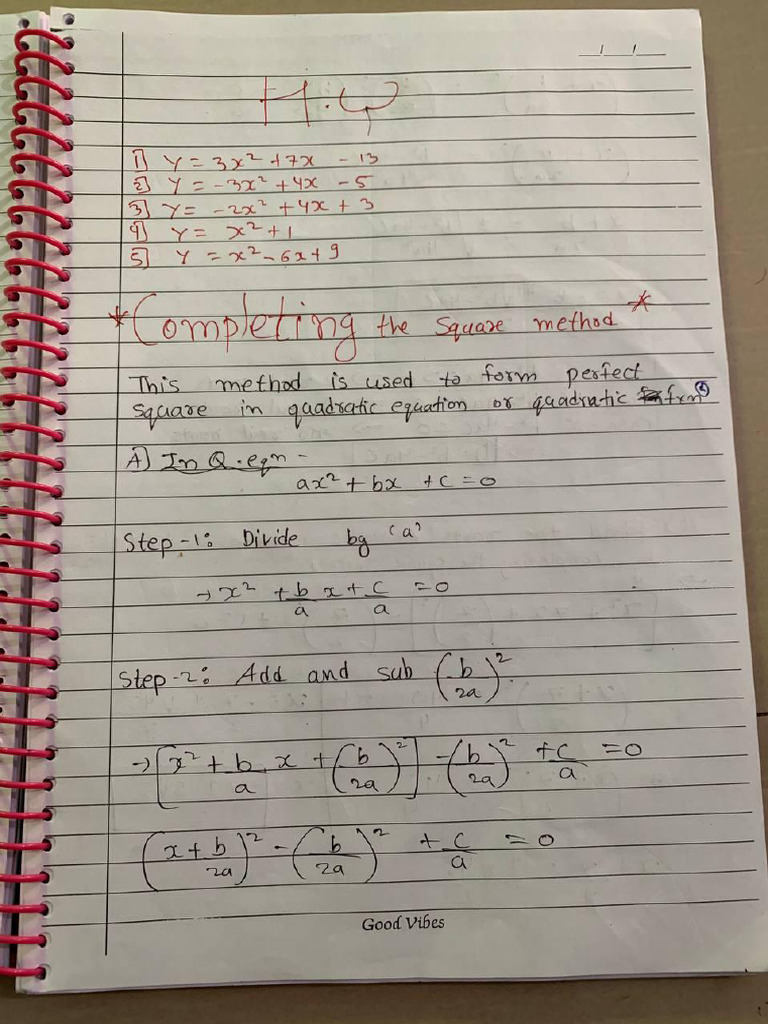 / /
H.W
1] Y = 3x² + 7x - 13
2] Y = -3x² + 4x - 5
3] Y = -2x² + 4x + 3
4] Y = x² + 1
5] Y = x² - 6x + 9
* Completing the square method *
This method is used to form perfect
square in quadratic equation or quadratic fxn
A] In Q.eqn -
ax² + bx + c = 0
Step-1: Divide by 'a'
→ x² + b/a x + c/a = 0
Step-2: Add and sub (b/2a)²
→ [x² + b/a x + (b/2a)²] - (b/2a)² + c/a = 0
(x + b/2a)² - (b/2a)² + c/a = 0
Good Vibes